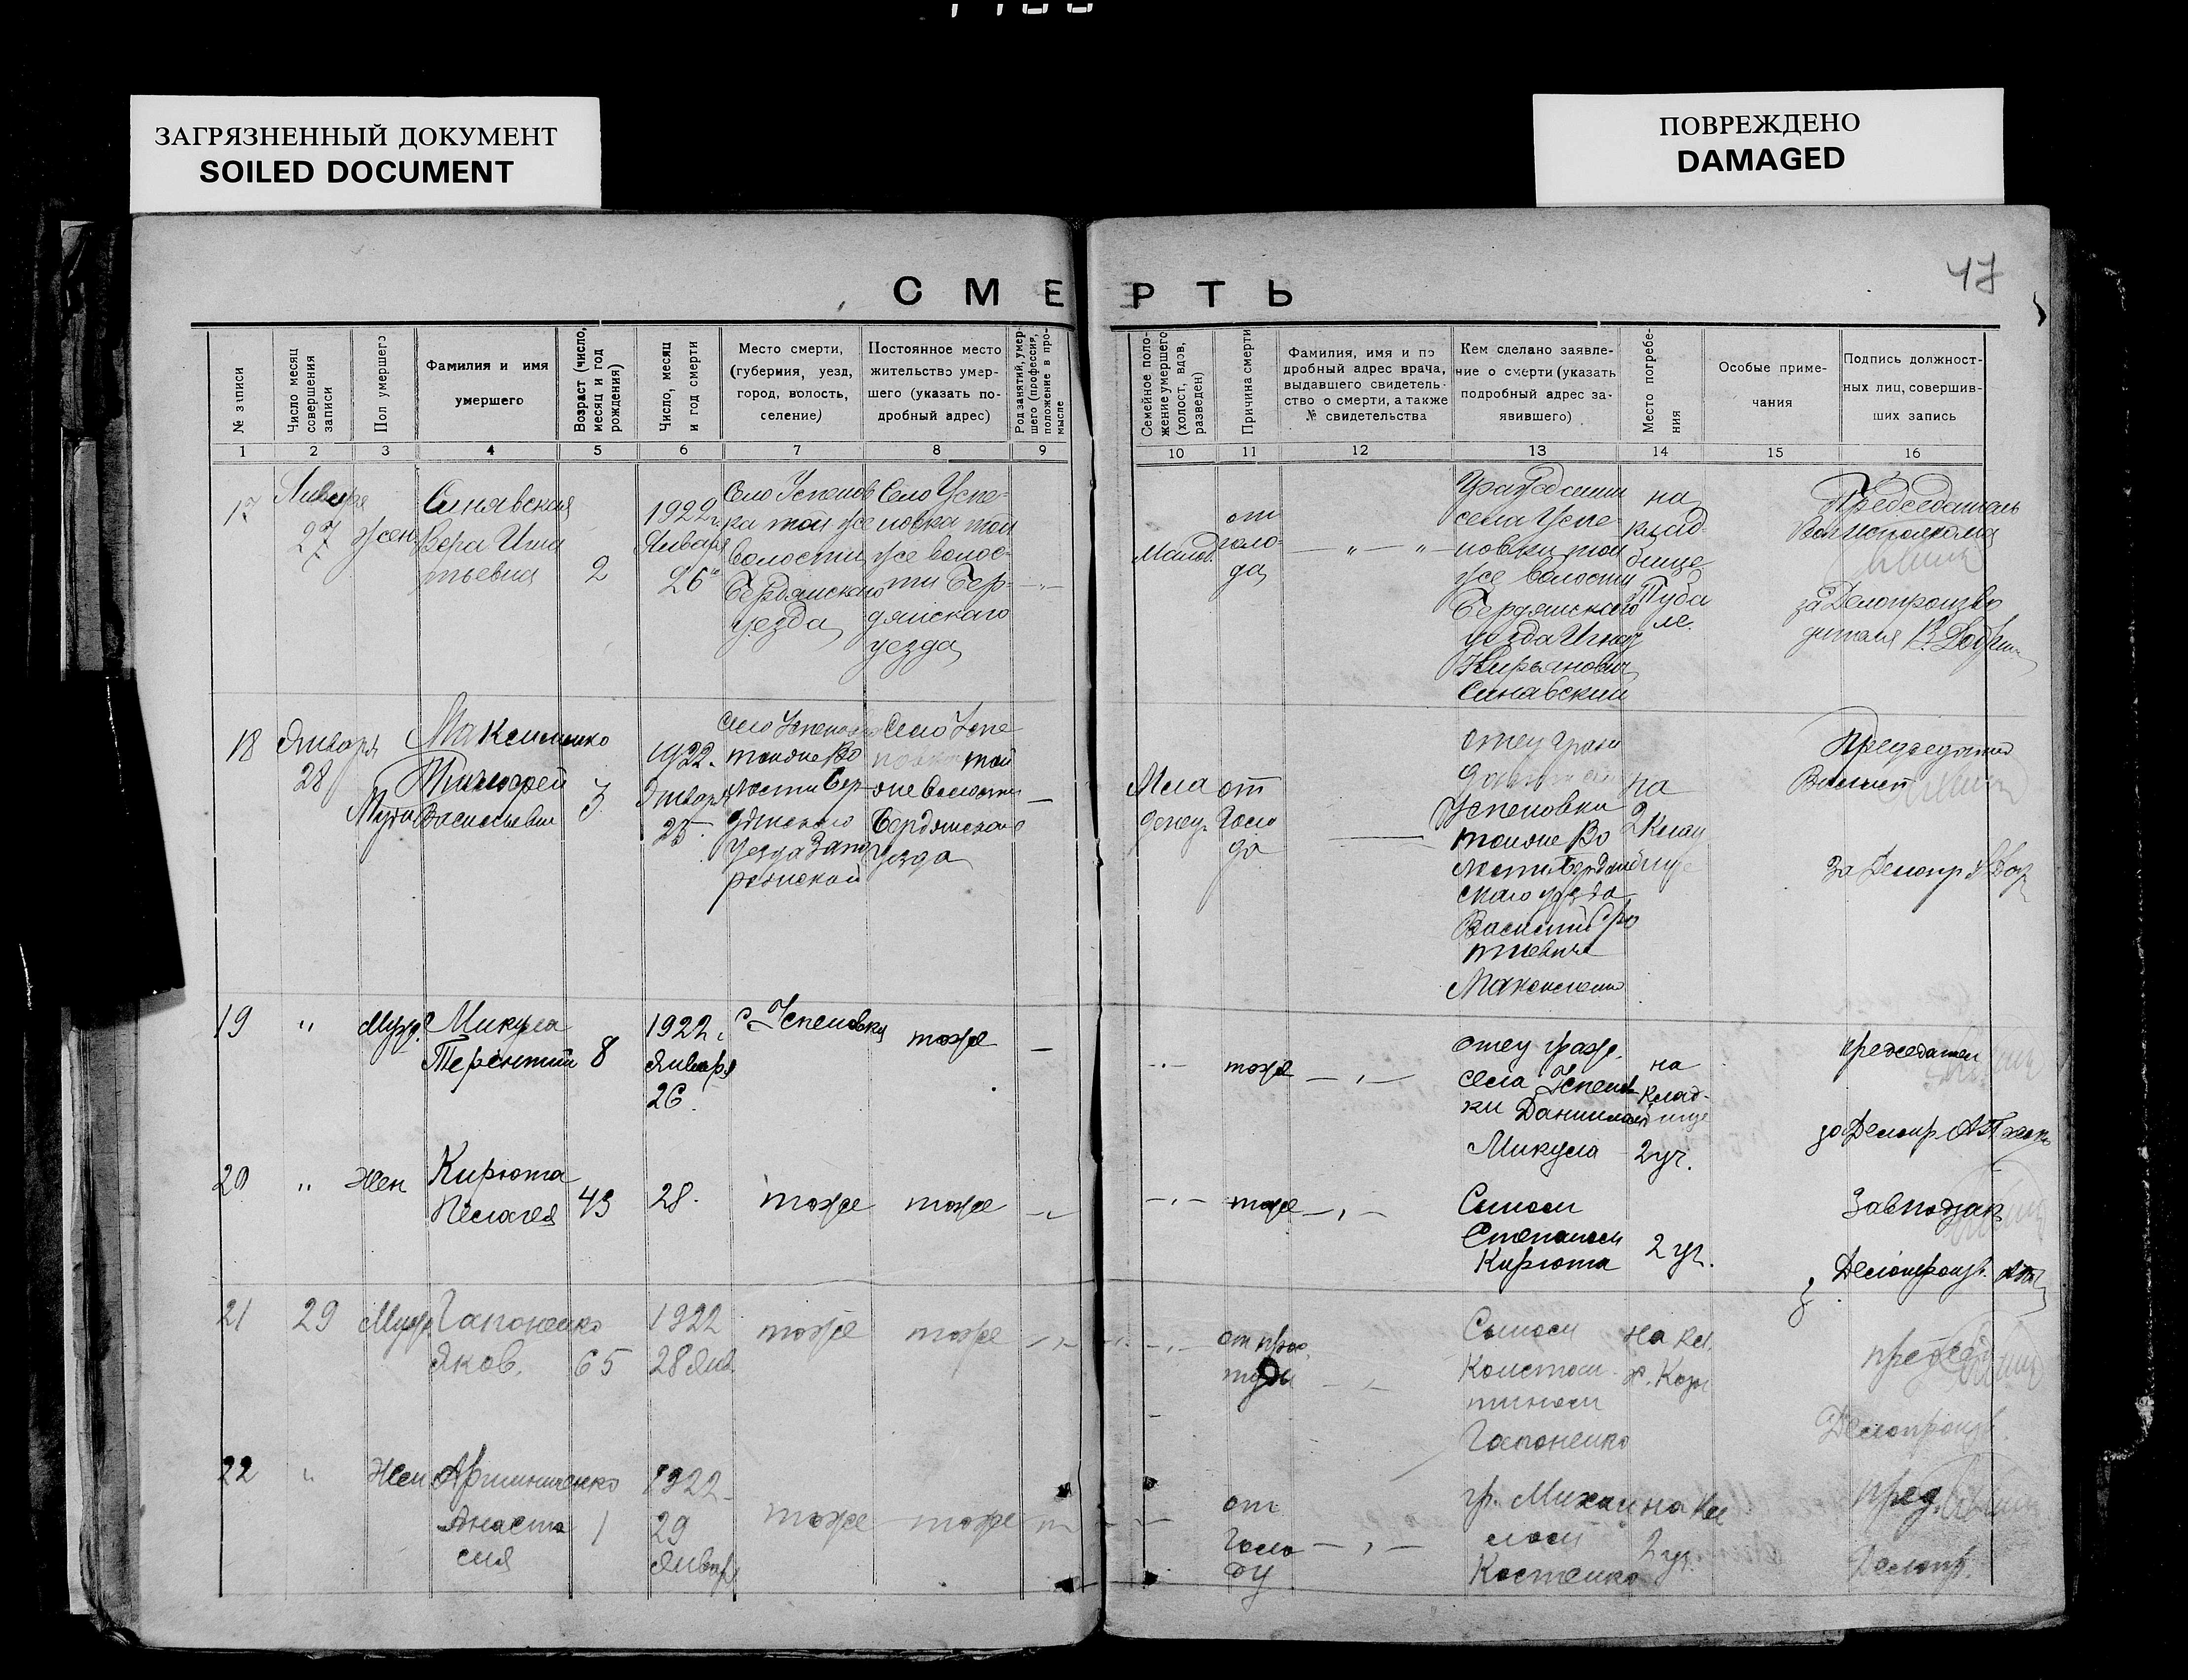 ЗАГРЯЗНЕННЫЙ ДОКУМЕНТ
SOILED DOCUMENT
ПОВРЕЖДЕНО
DAMAGED
47
СМЕРТЬ
№ записи
Число месяц совершения записи
Пол умершего
Фамилия и имя умершего
Возраст (число, месяц и год рождения)
Число, месяц и год смерти
Место смерти, (губерния, уезд, город, волость, селение)
Постоянное место жительство умершего (указать подробный адрес)
Род занятий, умершего (профессия, положение в промысле
Семейное положение умершего (холост, вдов, разведен)
Причина смерти
Фамилия, имя и подробный адрес врача, выдавшего свидетельство о смерти, а также № свидетельства
Кем сделано заявление о смерти (указать подробный адрес заявившего)
Место погребения
Особые примечания
Подпись должностных лиц, совершивших запись
1 2 3 4 5 6 7 8 9 10 11 12 13 14 15 16
17
Января
27
жен
Синявская
Вера Игна
тьевна
2
1922 г.
Января
26
Село Успенов
ка той же
волости
Бердянскаго
уезда
Село Успе-
новка той
же волос-
ти Бер-
дянскаго
уезда
от
голо-
да
Гражданин
села Успе-
новки той
же волости
Бердянскаго
уезда Игнат
Кирьянович
Синявский
на
клад-
бище
Председатель
Волисполкома
за Делопроизво
дителя
18
Января
28
Муж
Максименко
Тимофей
Васильевич
3
1922.
Января
25.
Село Успеновка
той же Во
лости Бер
дянского
Уезда Запо
рожской
Село Успе
новка той
же волости
Бердянского
Уезда
—
Мла
денец
от
Голо
да
отец граж
Успеновки
той же Во
лости Бердян
скаго уезда
Василий
Максименко
на
2 Клад
бище
Председатель
за Делопр
19
"
Муж.
Микула
Терентий
8
1922 г.
Января
26.
с. Успеновка
тоже
—
тоже
отец граж.
села Успенов
ки Даниил
Микула
на
клад-
бище
2 уч.
председатель
за Делопр
20
"
Жен
Кирюта
Пелагея
43
28.
тоже
тоже
тоже
Сыном
Степаном
Кирюта
2 уч.
Делопроизв.
21
29
Муж
Гапоненко
Яков.
65
1922
28 Янв.
тоже
тоже
от прос
туды
Сыном
Констан-
тином
Гапоненко
на кл.
председ
Делопроизв.
22
"
Жен
Анаста
сия
1
1922
29
Январ
тоже
тоже
от
Голо
ду
гр. Михаи
лом
Костенко
на кл
2 уч.
пред.
Делопр.